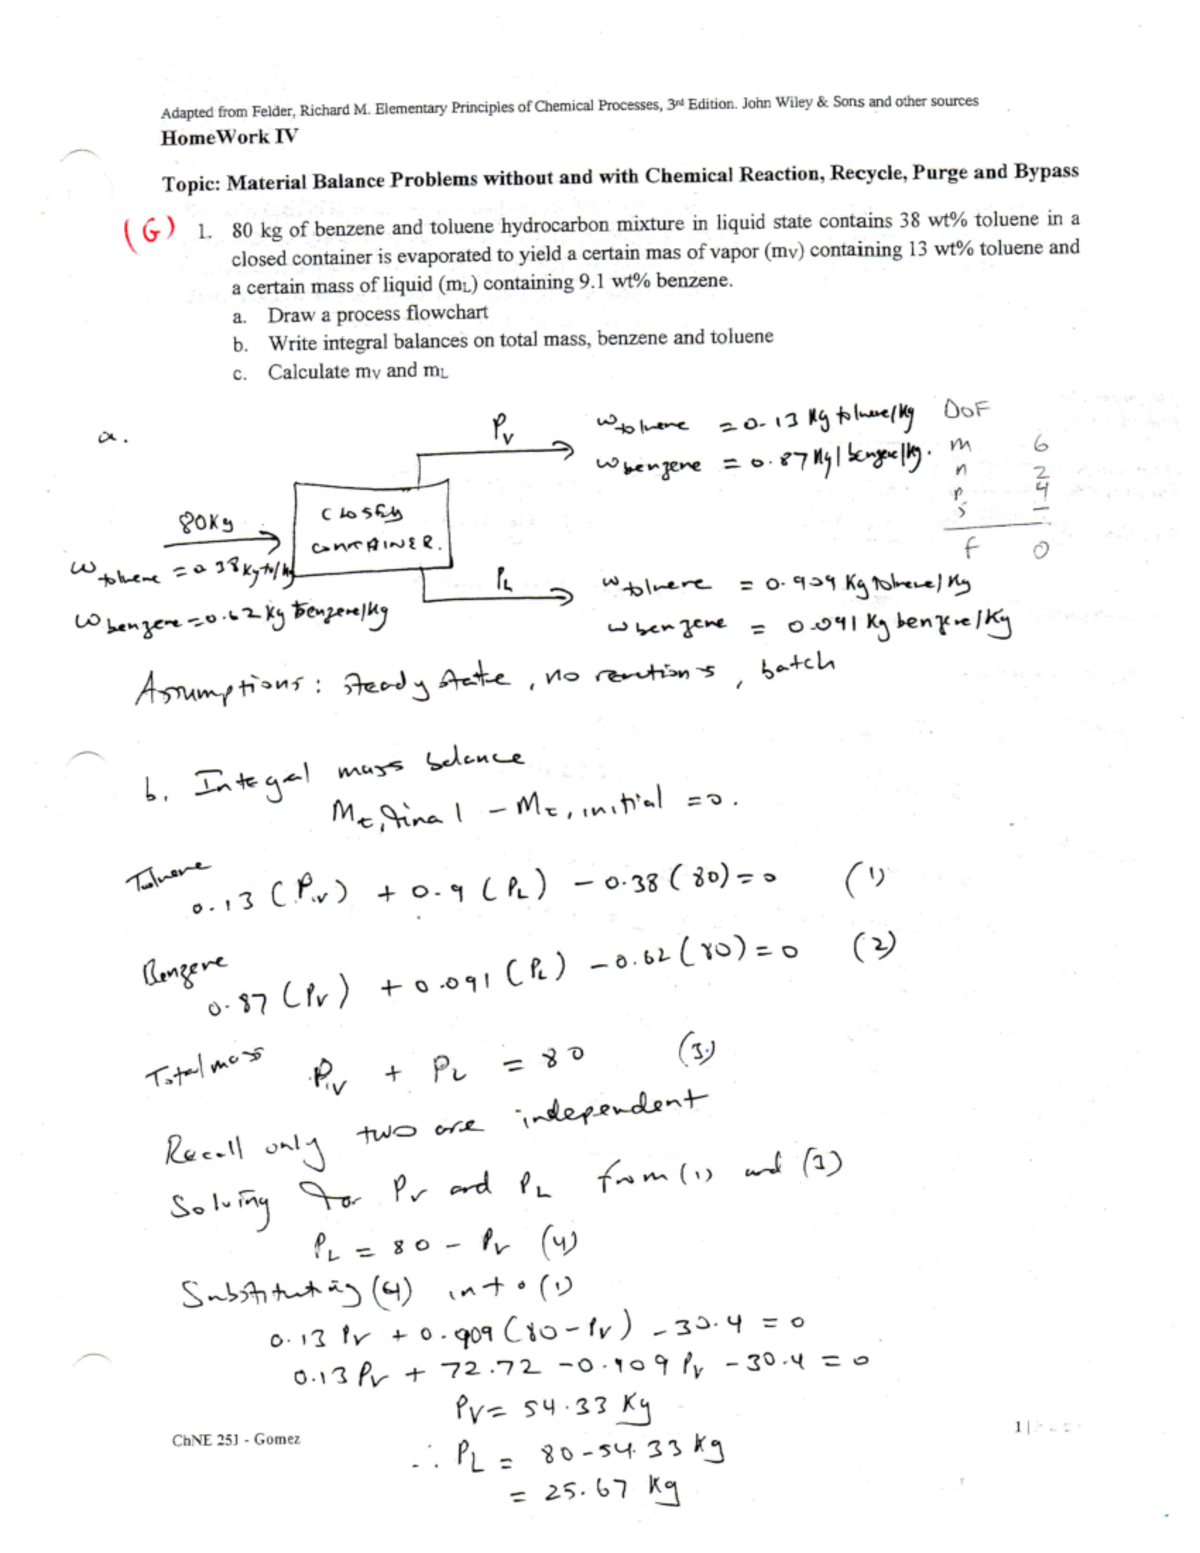 Adapted from Felder, Richard M. Elementary Principles of Chemical Processes, 3rd Edition. John Wiley & Sons and other sources
HomeWork IV
Topic: Material Balance Problems without and with Chemical Reaction, Recycle, Purge and Bypass
(G) 1. 80 kg of benzene and toluene hydrocarbon mixture in liquid state contains 38 wt% toluene in a
closed container is evaporated to yield a certain mas of vapor (mv) containing 13 wt% toluene and
a certain mass of liquid (mL) containing 9.1 wt% benzene.
a. Draw a process flowchart
b. Write integral balances on total mass, benzene and toluene
c. Calculate mv and mL
a.
Pv
Wtoluene = 0.13 Kg toluene/Kg
Wbenzene = 0.87 Kg benzene/Kg.
DoF
m 6
n 2
p 4
s –
f 0
80Kg
Wtoluene = 0.38 Kg tol/Kg
Wbenzene = 0.62 Kg benzene/Kg
CLOSED
CONTAINER.
PL
Wtoluene = 0.909 Kg toluene/Kg
Wbenzene = 0.091 Kg benzene/Kg
Assumptions: steady state, no reactions, batch
b. Integal mass balance
Mt,final – Mt,initial = 0.
Toluene
0.13 (Pv) + 0.9 (PL) – 0.38 (80) = 0 (1)
Benzene
0.87 (Pv) + 0.091 (PL) – 0.62 (80) = 0 (2)
Total mass Pv + PL = 80 (3)
Recall only two are independent
Solving for Pv and PL from (1) and (3)
PL = 80 – Pv (4)
Substituting (4) into (1)
0.13 Pv + 0.909 (80 – Pv) – 30.4 = 0
0.13 Pv + 72.72 – 0.909 Pv – 30.4 = 0
Pv = 54.33 Kg
∴ PL = 80 – 54.33 Kg
= 25.67 Kg
ChNE 251 - Gomez
1 |